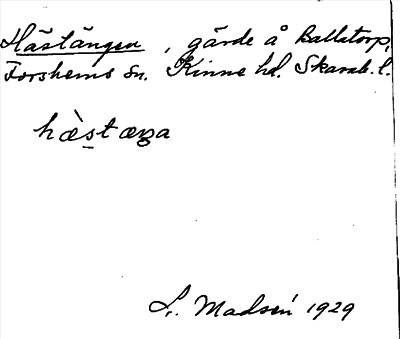 Hästängen, gärde å Ballstorp,
Forshems sn. Kinne hd. Skarab. l.
hæ̀s̠tæŋa
L. Madsén 1929